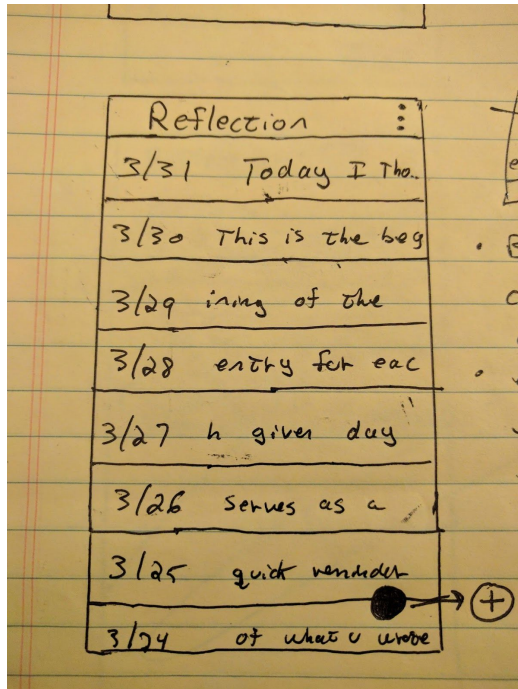 Reflection
3/31 Today I Tho..
3/30 This is the beg
3/29 ining of the
3/28 entry for eac
3/27 h given day
3/26 serves as a
3/25 quick reminder
3/24 of what u wrote